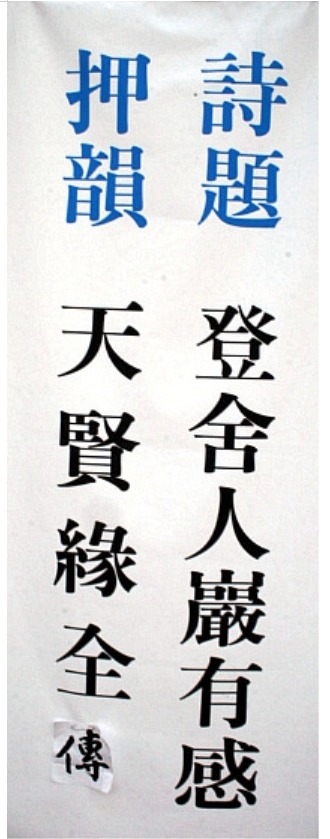 詩題 登舍人巖有感
押韻 天賢緣全傳